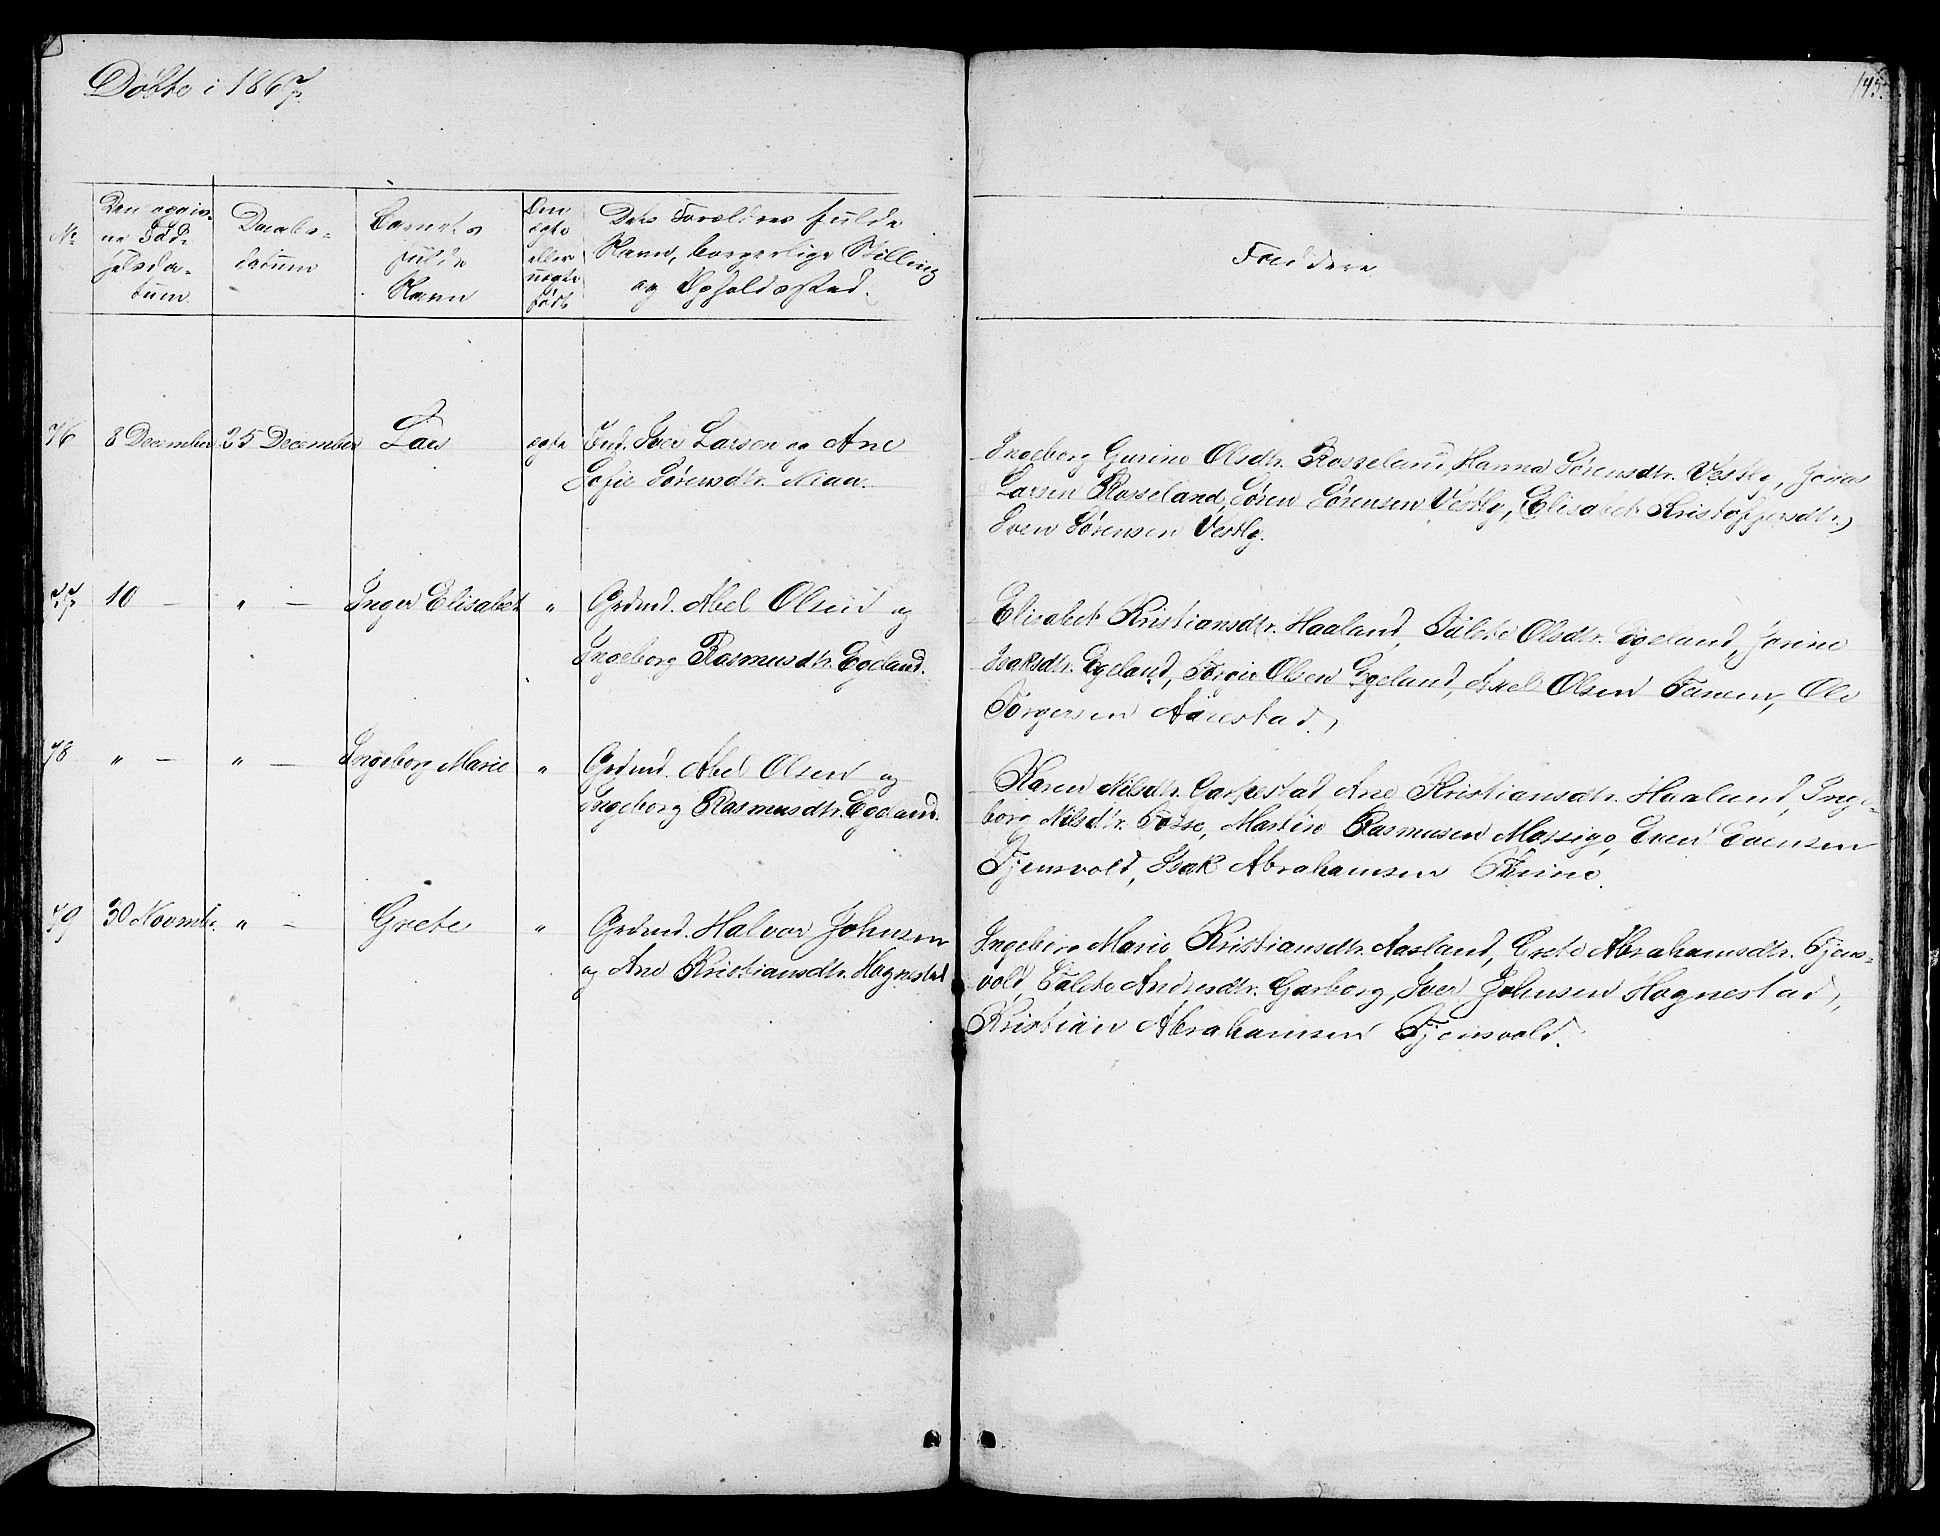 Døbte i 1867.
145.
No
Den opgiv-
ne Fød-
selsda-
tum.
Daabs-
datum
Barnets
fulde
Navn
Om
egte
eller
uegte
født
Dets Forældres fulde
Navn, borgerlige Stilling
og Opholdssted.
Faddere
76 8 December 25 December Lars egte Ind. Iver Larsen og Ane
Sofie Sørensdtr. Niaa.
Ingeborg Gurine Olsdtr. Rosseland, Hanna Sørensdtr. Vestly, Jonas
Larsen Rosseland, Søren Sørensen Vestly, Elisabet Kristoffersdtr.,
Sven Sørensen Vestly.
77. 10 — " — Inger Elisabet " Grdmd. Abel Olsen og
Ingeborg Rasmusdtr. Egeland.
Elisabet Kristiansdtr. Haaland, Talete Olsdtr. Egeland, Jorine
Isaksdtr. Egeland, Torger Olsen Egeland, Axel Olsen Tunem, Ole
Torgersen Aarestad.
78 " — " — Ingeborg Marie " Grdmd. Abel Olsen og
Ingeborg Rasmusdtr. Egeland.
Karen Nilsdtr. Carpestad, Ane Kristiansdtr. Haaland, Inge-
borg Nilsdtr. Fosse, Martin Rasmusen Mossige, Even Evensen
Fjermvold, Isak Abrahamsen Thime.
79 30 Novmbr. " — Grete " Grdmd. Halvor Johnsen
og Ane Kristiansdtr. Hognestad
Ingeborg Marie Kristiansdtr. Aasland, Grete Abrahamsdtr. Fjerm-
vold, Talete Andresdtr. Garborg, Iver Johnsen Hognestad,
Kristian Abrahamsen Fjermvold.